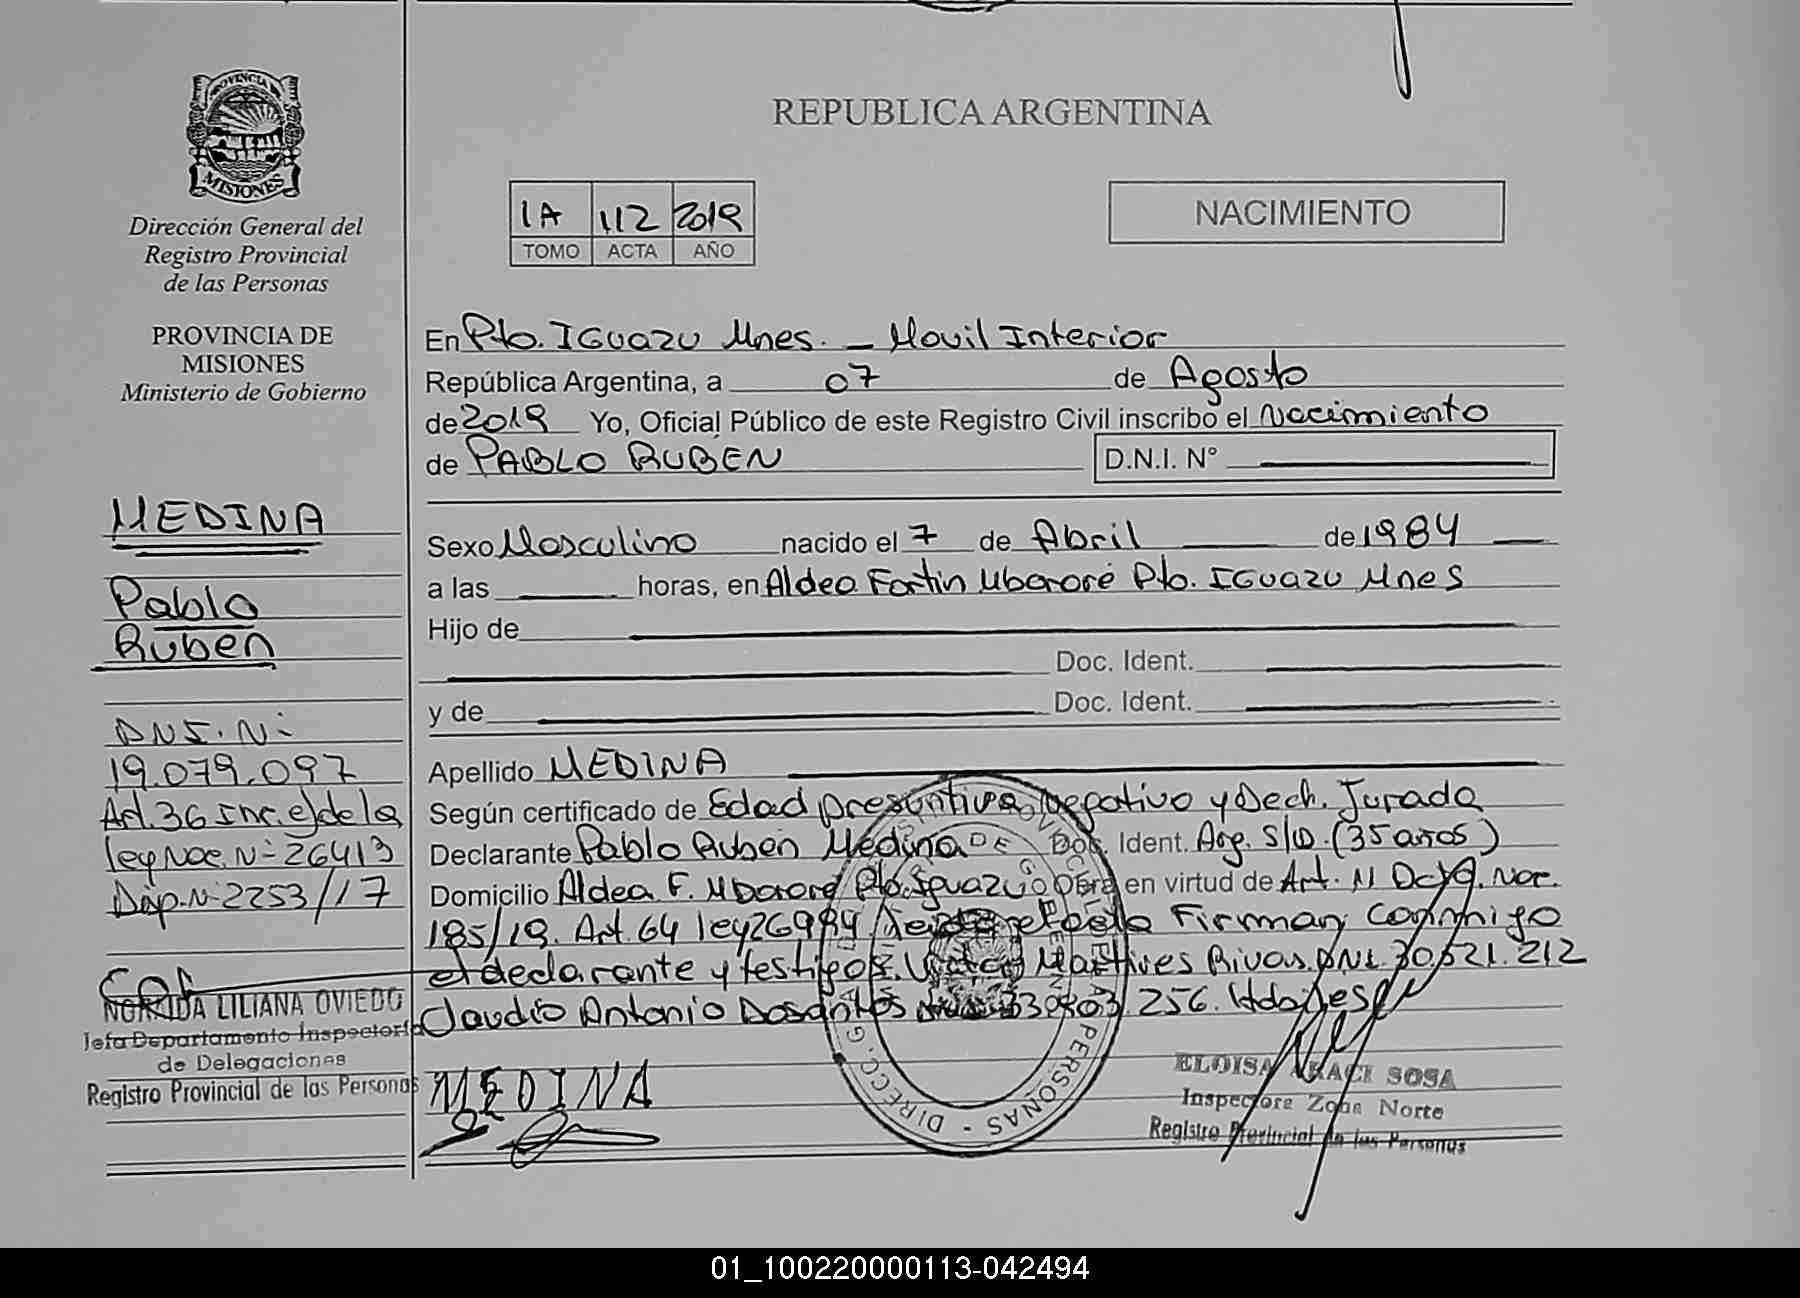 PROVINCIA
MISIONES
Dirección General del
Registro Provincial
de las Personas
PROVINCIA DE
MISIONES
Ministerio de Gobierno
MEDINA
Pablo
Ruben
DNI. Nº
19.079.097
Art. 36 Inc. e) de la
ley Nac. Nº 26413
Disp. Nº 2253/17
NORMA LILIANA OVIEDO
Jefa Departamento Inspectoría
de Delegaciones
Registro Provincial de las Personas
REPUBLICA ARGENTINA
1A 112 2019
TOMO ACTA AÑO
NACIMIENTO
En Pto. Iguazu Mnes. - Movil Interior
República Argentina, a 07 de Agosto
de 2019 Yo, Oficial Público de este Registro Civil inscribo el Nacimiento
de PABLO RUBEN D.N.I. N°
Sexo Masculino nacido el 7 de Abril de 1984
a las horas, en Aldea Fortin Mbororé Pto. Iguazu Mnes
Hijo de
Doc. Ident.
y de Doc. Ident.
Apellido MEDINA
Según certificado de Edad presuntiva, Negativo y Dech. Jurada
Declarante Pablo Ruben Medina Doc. Ident. Arg. S/D. (35 años)
Domicilio Aldea F. Mbororé Pto. Iguazu Obra en virtud de Art. 11 Nac.
185/19. Art. 64 ley 26994 Firman Conmigo
el declarante y testigos. Martines Rivas DNI. 30.521.212
Claudio Antonio Dosantos 256.
MEDINA
ELOISA ARACI SOSA
Inspectora Zona Norte
Registro Provincial de las Personas
01_100220000113-042494